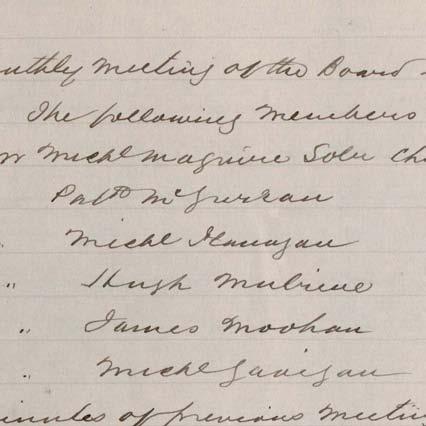 nthly Meeting of the Board
The following Members
Mr Michl Maguire Solr Ch
Patk McGurran
" Michl Flanagan
" Hugh
" James Moohan
" Michl Gavigan
inutes of previous Meeting